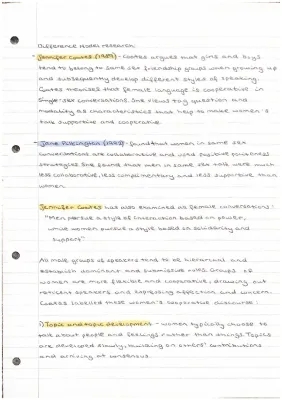 Difference Model research:
Jennifer Coates (1989) - Coates argues that girls and boys
tend to belong to same sex friendship groups when growing up
and subsequently develop different styles of speaking.
Coates theorises that female language is cooperative in
single-sex conversations. She views tag question and
modality as characteristics that help to make women's
talk supportive and cooperative.
Jane Pilkington (1992) - found that women in same sex
conversations are collaborative and used positive politeness
strategies. She found that men in same sex talk were much
less collaborative, less complimentary and less supportive than
women.
Jennifer Coates has also examined all female conversations:
"Men pursue a style of interaction based on power,
while women pursue a style based on solidarity and
support"
All male groups of speakers tend to be hierarchal and
establish dominant and submissive roles. Groups of
women are more flexible and cooperative, drawing out
reticent speakers and expressing affection and concern.
Coates labelled these women's cooperative discourse:
1) Topic and topic development - women typically choose to
talk about people and feelings rather than things. Topics
are developed slowly, building on others' contributions
and arriving at consensus.